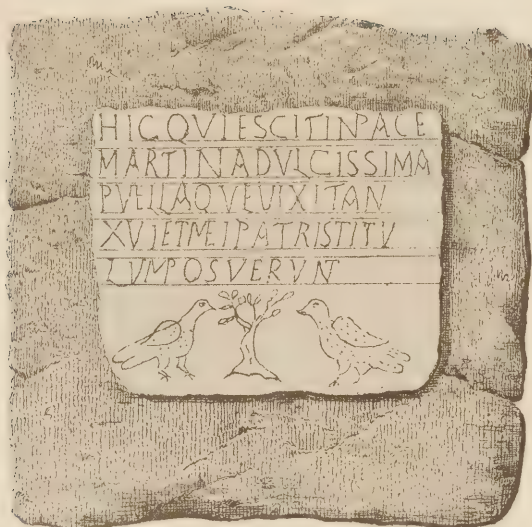 HICQVIESCITINPACE
MARTINADVLCISSIMA
PVELLAQVEVIXITAN
XVIETMEIPATRISTITV
LVMPOSVERVNT